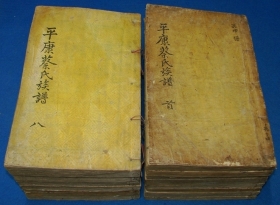 平康蔡氏族譜 首
平康蔡氏族譜 八